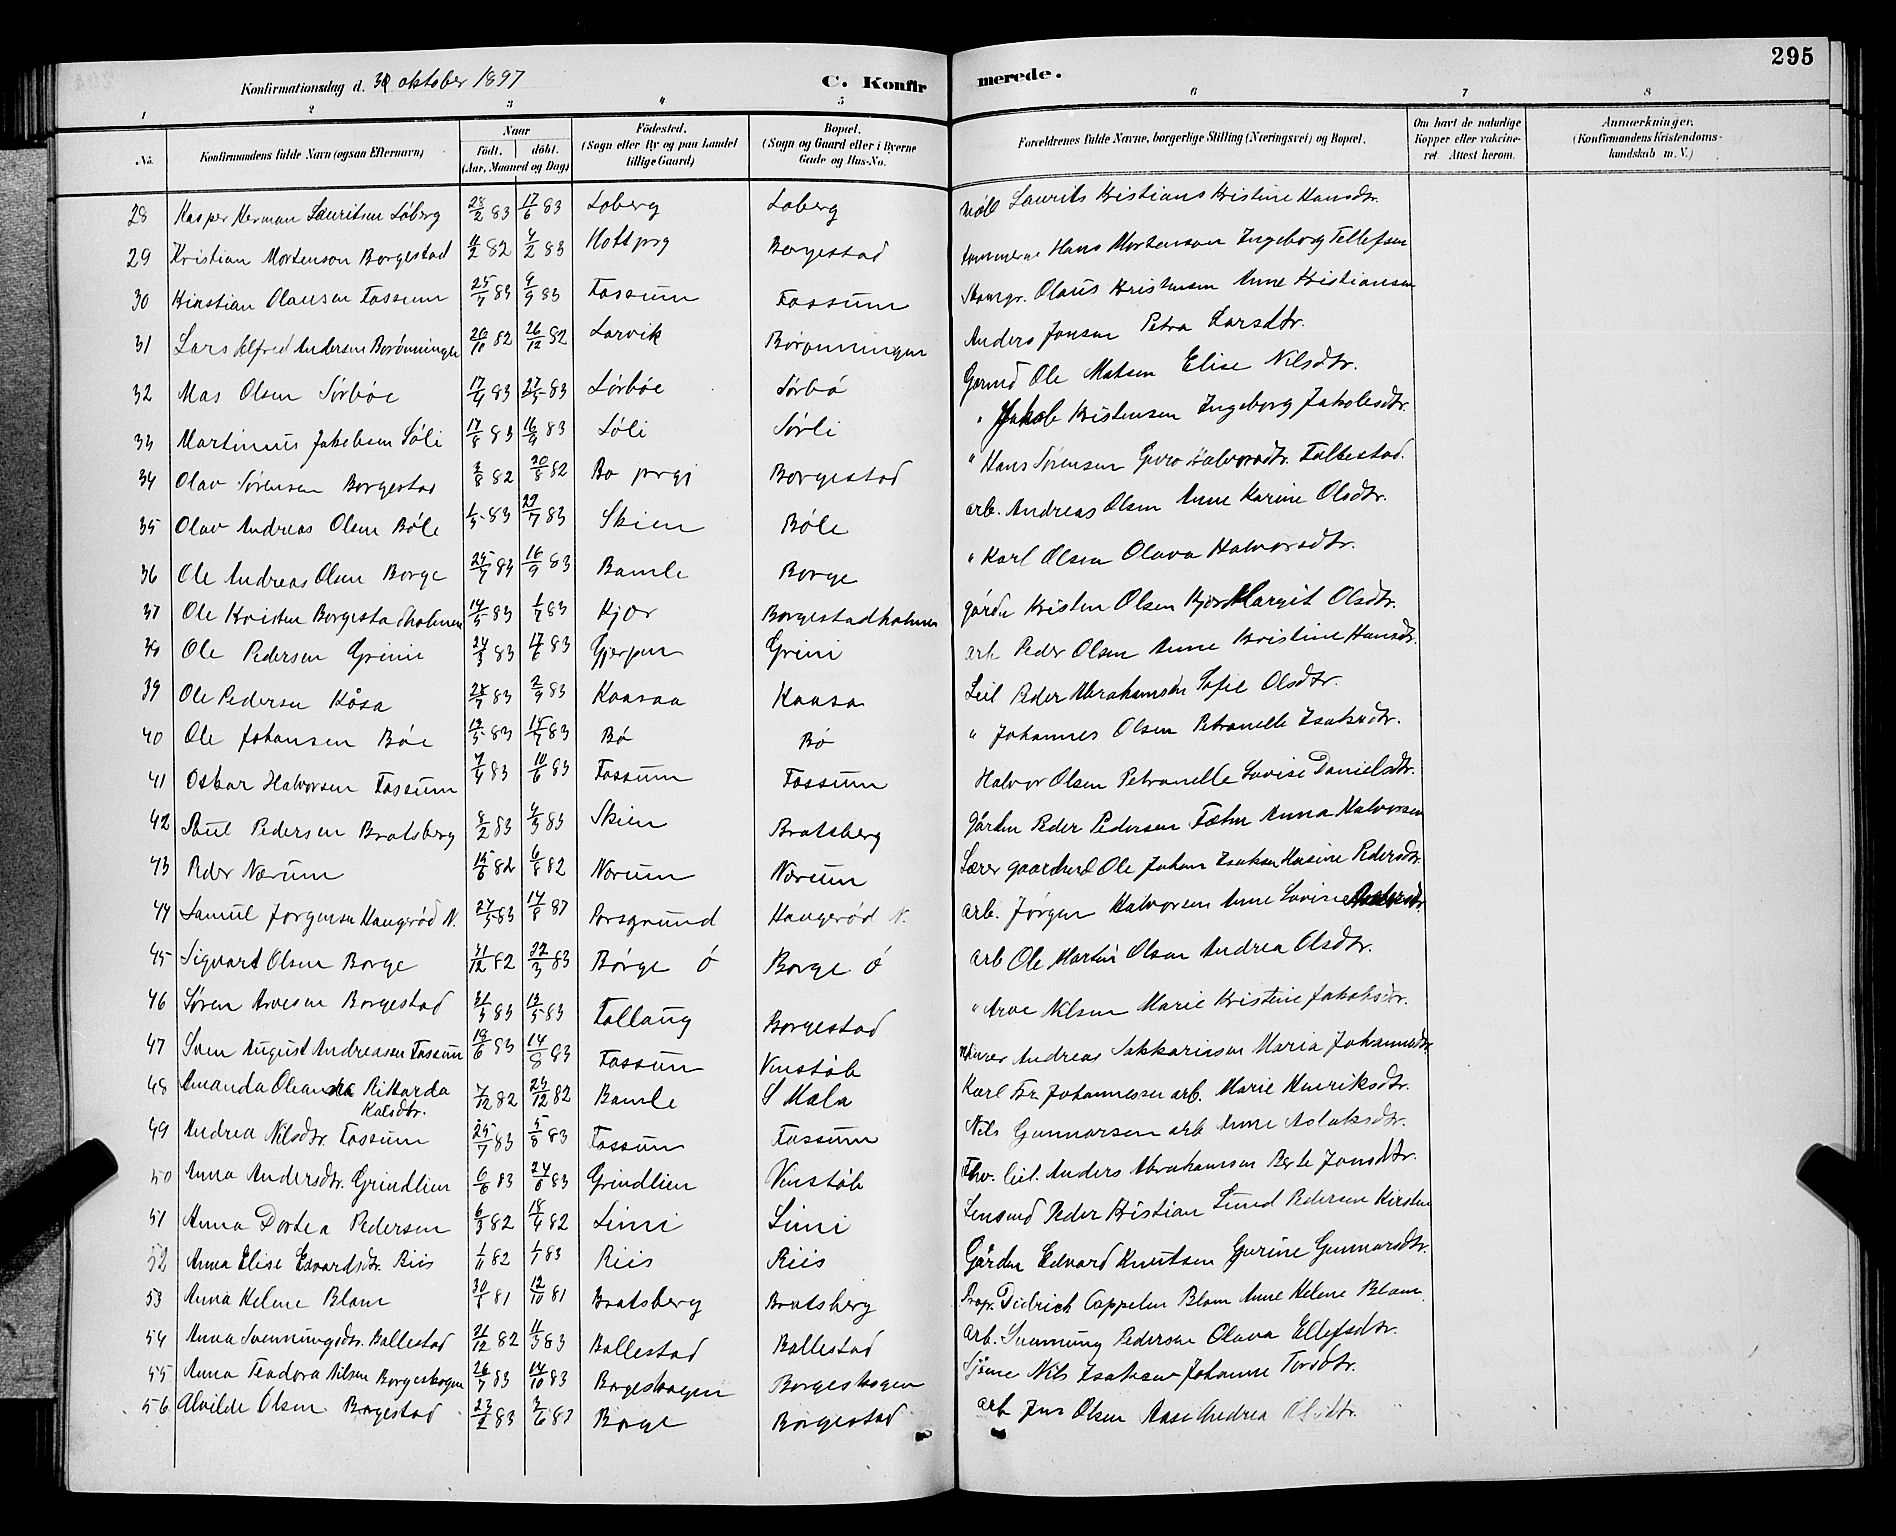 295
Konfirmationsdag d. 3 oktober 1897 C. Konfirmerede.
1 2 3 4 5 6 7 8
No. Konfirmandens fulde Navn (ogsaa Efternavn) Naar födt. döbt. (Aar, Maaned og Dag) Födested. (Sogn eller By og paa Landet tillige Gaard) Bopæl. (Sogn og Gaard eller i Byerne Gade og Hus-No. Forældrenes fulde Navne, borgerlige Stilling (Næringsvei) og Bopæl. Om havt de naturlige Kopper eller vakcineret. Attest herom. Anmærkninger. (Konfirmandens Kristendomskundskab m. V.)
28 Kasper Herman Lauritsen Löberg 28/2 83 17/6 83 Loberg Loberg Laurits Kristians Kristine Hansdtr.
29 Kristian Mortenson Borgestad 82 4/2 83 Borgestad Hans Mortenson Ingeborg Tellefsen
30 Kirstian Olausen Fossum 83 9/9 83 Fossum Fossum Olaus Kristensen Anne Kristiansen
31 Lars Alfred Andersen Borönningen 26/10 82 26/12 82 Larvik Börönningen Anders Jonsen Petra Larsdtr.
32 Mas Olsen Sørbøe 17/4 83 27/5 83 Sörböe Sørbø Garmd Ole Matsen Elise Nilsdtr.
33 Martinus Jakobsen Söli 17/8 83 16/9 83 Söli Sörli " Jakob Kristensen Ingeborg Jakobsdtr.
34 Olav Sørensen Borgestad 82 20/8 82 Bo prgj Borgestad " Hans Sørensen Guro Halvorsdtr.
35 Olav Andreas Olsen Böle 1/5 83 29/7 83 Skien Böle arb. Andreas Olsen Anne Karine Olsdtr.
36 Ole Andreas Olsen Borge 25/7 83 16/9 83 Bamle Borge " Karl Olsen Olava Halvorsdtr.
37 Ole Kristen Borgestadholmen 14/5 83 1/7 83 Kjor Borgestadholmen gårdm Kristen Olsen Margit Olsdtr.
38 Ole Pedersen Grinie 24/3 83 17/6 83 Gjerpen Grini arb Peder Olsen Anne Kristine Hansdtr.
39 Ole Pedersen Kåsa 83 2/9 83 Kaasaa Kaasa Leil Peder Abrahamsen Sofie Olsdtr.
40 Ole Johansen Böe 83 83 Bö Bö " Johannes Olsen Petronelle Isaksdtr.
41 Oskar Halvorsen Fossum 7/4 83 10/6 83 Fossum Fossum Halvor Olsen Petronelle Lovise Danielsdtr.
42 Poul Pedersen Bratsberg 8/2 83 4/3 83 Skien Bratsberg Peder Pedersen Fæhn Anna Halvorsen
43 Peder Nærum 82 6/8 82 Nærum Nærum Lærer Ole Johan Isaksen Pedersdtr.
44 Samuel Jørgensen Haugerød N. 27/5 83 Porsgrund Haugerød N. arb. Jörgen Halvorsen Anne Lovise
45 Sigvart Olsen Borge 31/12 82 83 Börge Ö Borge Ö arb Ole Martin Olsen Andrea Olsdtr.
46 Søren Arvesen Borgestad 31/3 83 13/5 83 Borgestad " Arve Nilsen Marie Kristine Jakobsdtr.
47 Sven August Andreasen Fossum 19/6 83 14/8 83 Fossum Venstöb Andreas Sakkariasen Maria Johannesdtr.
48 Amanda Rikkarda Kalsdtr. 7/12 82 12 82 Bamle S Mæla Karl Fr. Johannesen arb. Marie Henriksdtr.
49 Andrea Nilsdtr. Fossum 25/7 83 5/8 83 Fossum Fossum Nils Gunnarsen arb Anne Aslaksdtr.
50 Anna Andersdtr. Grindlien 6/6 83 24/6 83 Grindlien Venstöb leil. Anders Abrahamsen Berte Jonsdtr.
51 Anna Dortea Pedersen 6/3 82 18/4 82 Limi Limi Lensmd Peder Kristian Lund Pedersen Kirsten
52 Anna Elise Edvardsdtr. Riis 1/11 82 1/1 83 Riis Riis Gårdm Edvard Knutsen Gurine Gunnarsdtr.
53 Anna Helene Blom 81 12/10 81 Bratsberg Bratsberg Propr. Didrich Cappelen Blom Anne Helene Blom
54 Anna Svenningsdtr. Ballestad 21/12 82 11/3 83 Ballestad Ballestad arb. Svenning Pedersen Olava Ellefsdtr.
55 Anna Teodora Nilsen Borgeskogen 26/7 83 14/10 83 Borgeskogen Borgeskogen Nils Isaksen Johanne Torsdtr.
56 Alvilde Olsen Borgestad 23/2 83 Borge Borgestad arb Jens Olsen Andrea